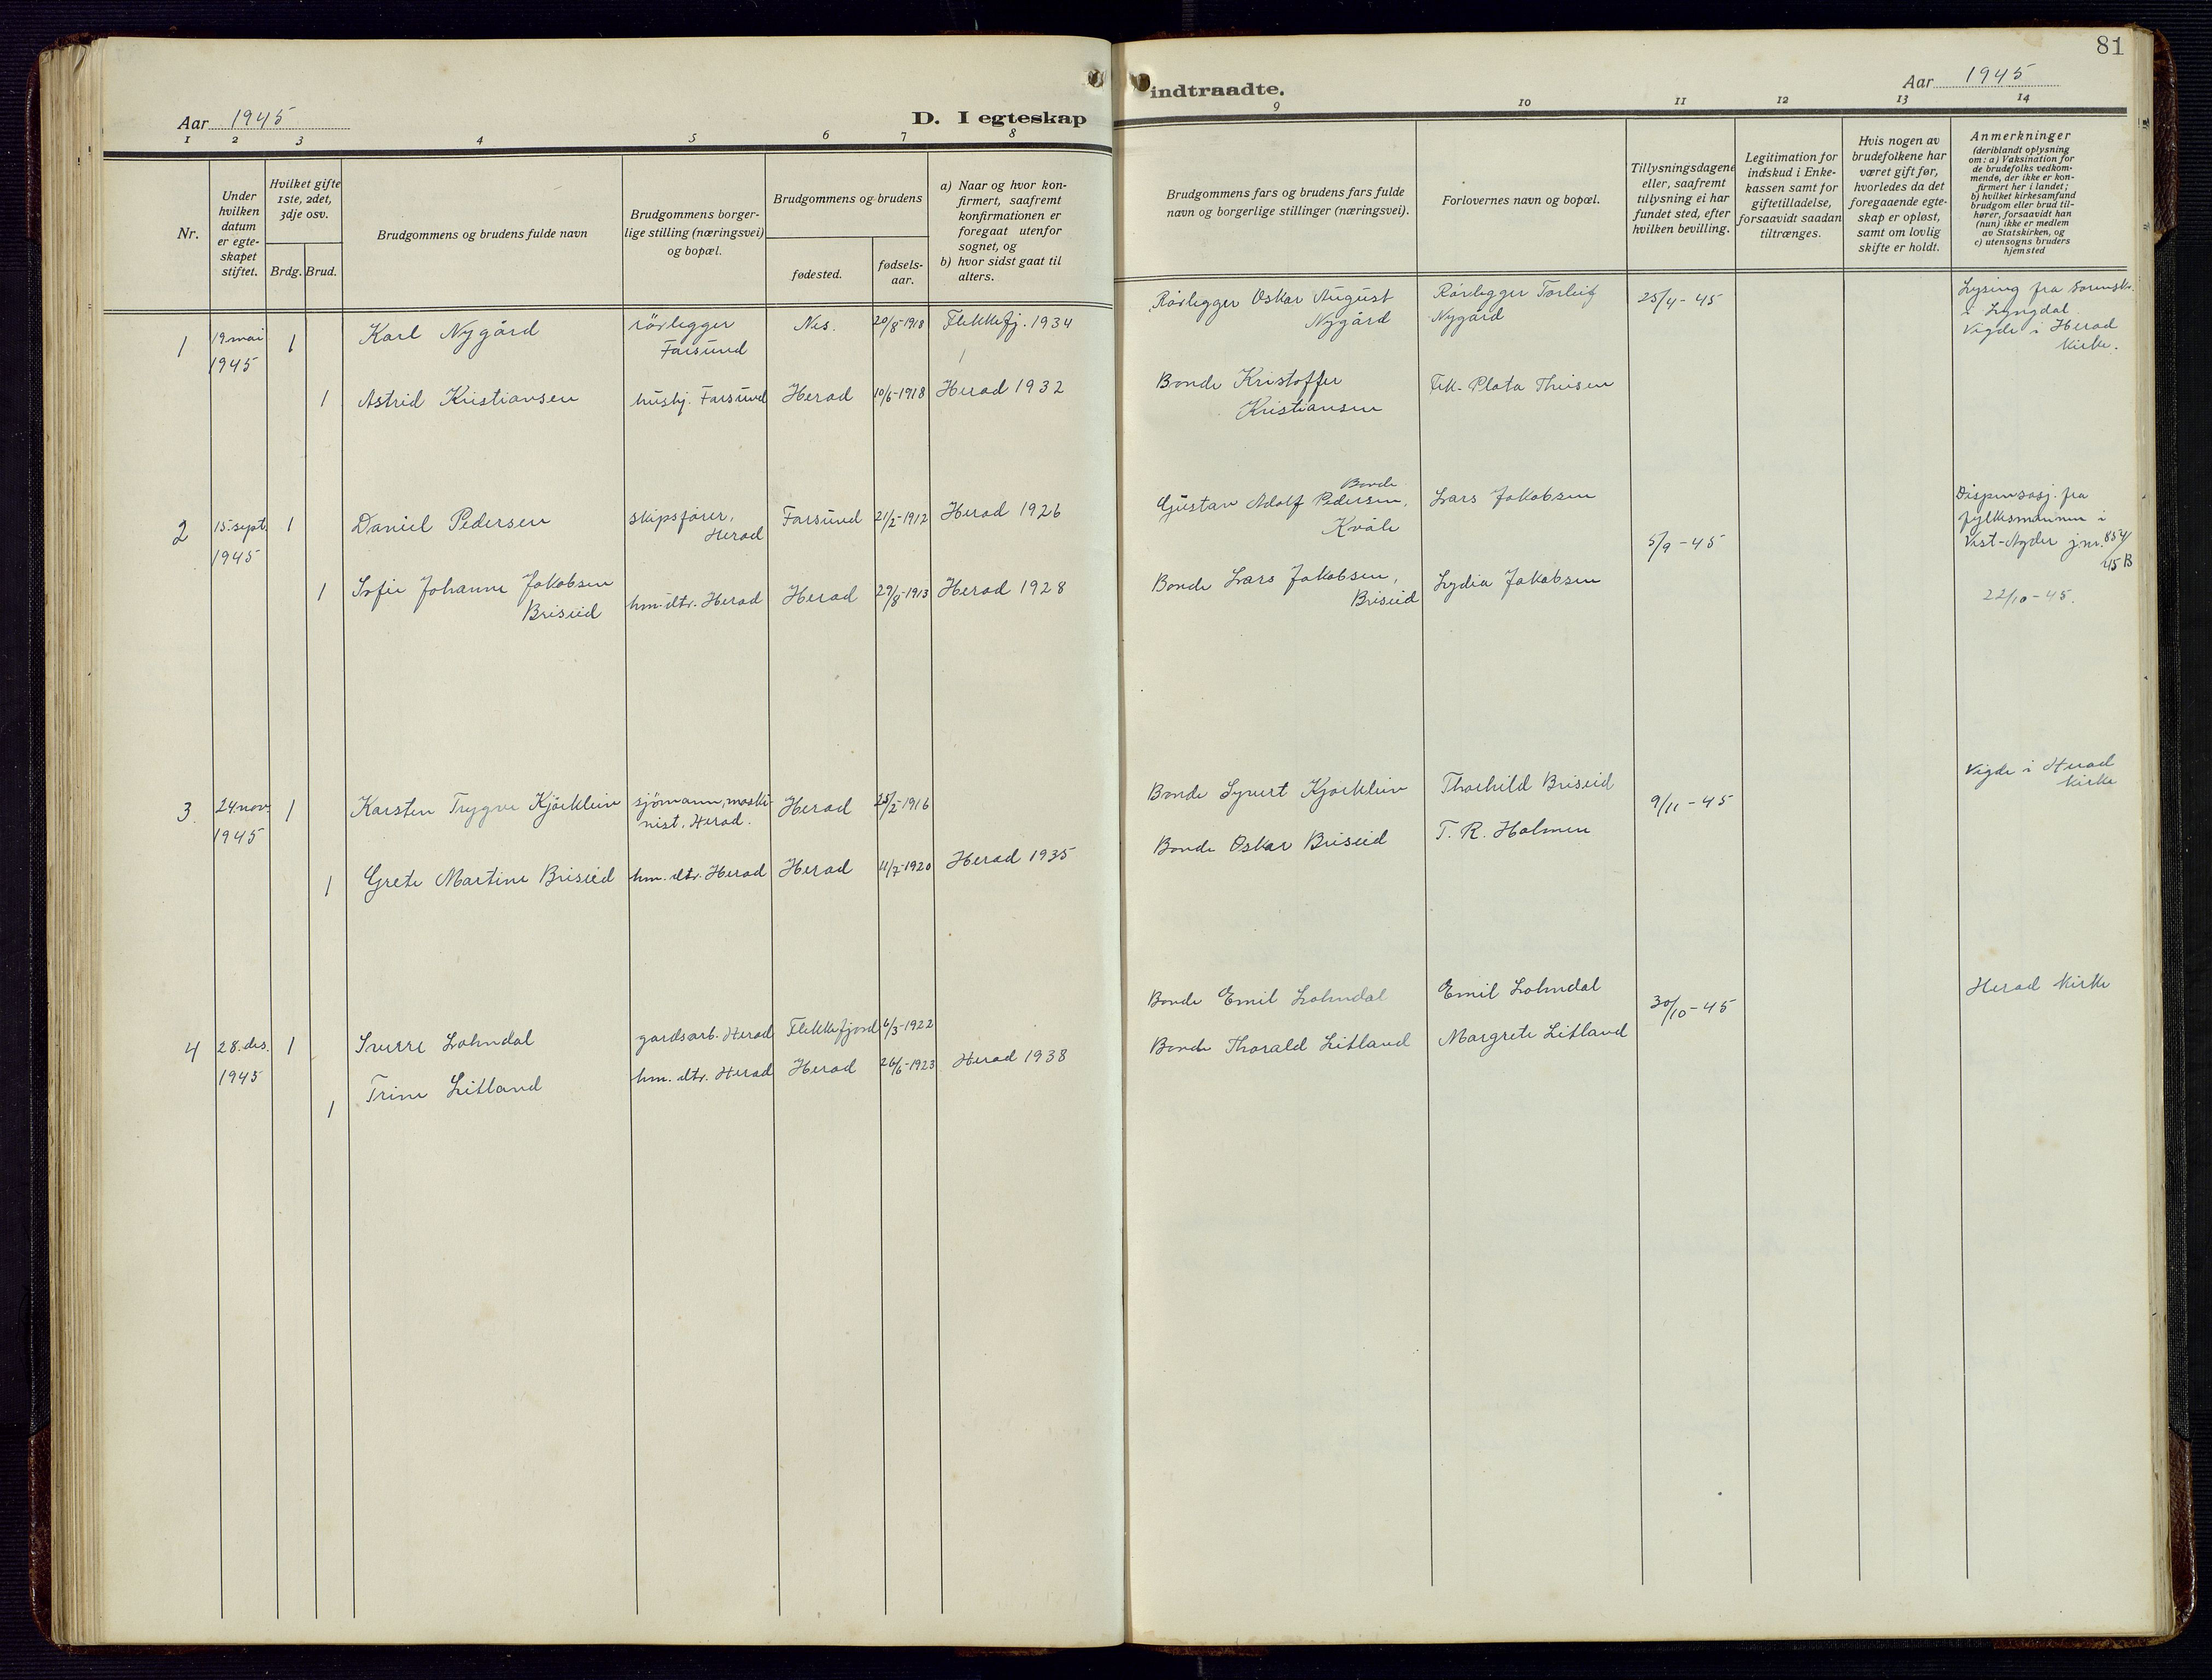 81
Aar 1945
D. I egteskap
indtraadte.
Aar 1945
1 2 3 4 5 6 7 8
9 10 11 12 13 14
Nr.
Under hvilken datum er egte-skapet stiftet.
Hvilket gifte 1ste, 2det, 3dje osv.
Brdg. Brud.
Brudgommens og brudens fulde navn
Brudgommens borger-
lige stilling (næringsvei)
og bopæl.
Brudgommens og brudens
fødested.
fødsels-
aar.
a) Naar og hvor kon-
firmert, saafremt
konfirmationen er
foregaat utenfor
sognet, og
b) hvor sidst gaat til
alters.
Brudgommens fars og brudens fars fulde
navn og borgerlige stillinger (næringsvei).
Forlovernes navn og bopæl.
Tillysningsdagene
eller, saafremt
tillysning ei har
fundet sted, efter
hvilken bevilling.
Legitimation for
indskud i Enke-
kassen samt for
giftetilladelse,
forsaavidt saadan
tiltrænges.
Hvis nogen av
brudefolkene har
været gift før,
hvorledes da det
foregaaende egte-
skap er opløst,
samt om lovlig
skifte er holdt.
Anmerkninger
(deriblandt oplysning
om: a) Vaksination for
de brudefolks vedkom-
mende, der ikke er kon-
firmert her i landet;
b) hvilket kirkesamfund
brudgom eller brud til-
hører, forsaavidt han
(hun) ikke er medlem
av Statskirken, og
c) utensogns bruders
hjemsted
1 19 mai 1945 1 Karl Nygård rörlegger Farsund Nes. 29/8-1918 Flekkefj. 1934
Rörlegger Oskar August Nygård
Rörlegger Torleif Nygård
25/4-45
Lysing fra
i Lyngdal
Vigde i Herad
Kirke.
1 Astrid Kristiansen hushj. Farsund Herad 10/6-1918 Herad 1932
Bonde Kristoffer Kristiansen
Frk. Plata Theisen
2 15. sept. 1945 1 Daniel Pedersen skipsfører, Herad Farsund 21/2-1912 Herad 1926
Bonde
Gustav Adolf Pedersen, Kvåle
Lars Jakobsen
5/9-45
Dispensasj. fra
fylkesmannen i
Vest-Agder j.nr. 854/
45 B
22/10-45.
1 Sofie Johanne Jakobsen Briseid hm. dtr. Herad Herad 29/8-1913 Herad 1928
Bonde Lars Jakobsen, Briseid
Lydia Jakobsen
3 24. nov. 1945 1 Karsten Trygve Kjørkleiv sjömann, maski-
nist, Herad. Herad 25/2-1916
Bonde Syvert Kjørkleiv
Thorhild Briseid
9/11-45
Vigde i Herad
kirke
1 Grete Martine Briseid hm. dtr. Herad Herad 11/7-1920 Herad 1935
Bonde Oskar Briseid
T. R. Holmen
4 28. des. 1945 1 Sverre Lohndal gardsarb. Herad Flekkefjord 6/3-1922
Bonde Emil Lohndal
Emil Lohndal
30/10-45
Herad kirke
1 Trine Litland hm. dtr. Herad Herad 26/6-1923 Herad 1938
Bonde Thorald Litland
Margrete Litland